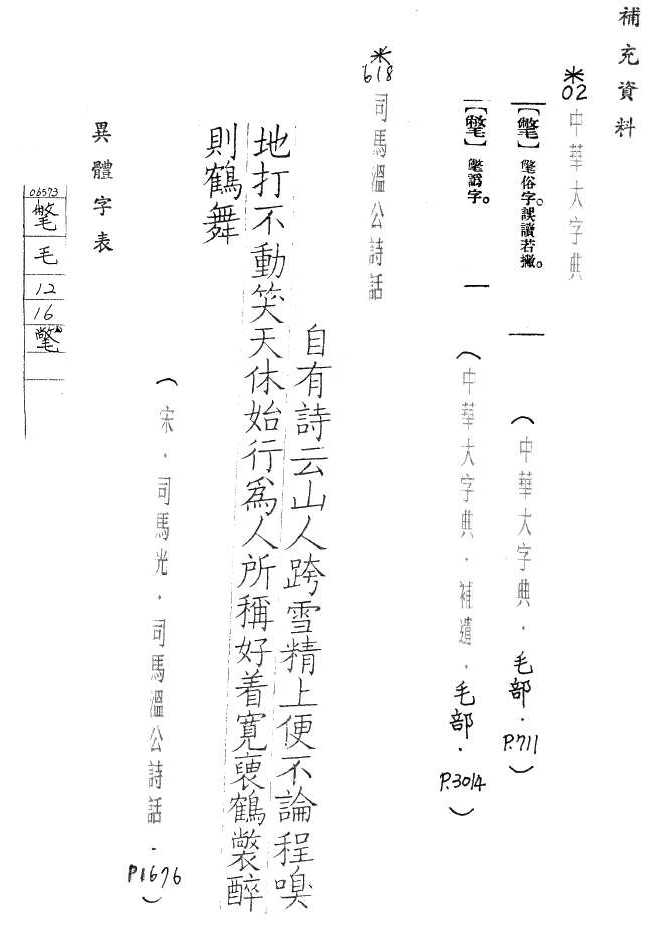 補充資料
*02 中華大字典
【】氅俗字。誤讀若撇。
(中華大字典．毛部．P.711)
【】氅譌字。
(中華大字典．補遺．毛部．P.3014)
*618 司馬溫公詩話
自有詩云山人跨雪精上便不論程嗅
地打不動笑天休始行爲人所稱好着寬褭鶴醉
則鶴舞
(宋．司馬光．司馬溫公詩話．P1676)
異體字表
06573
毛
12
16